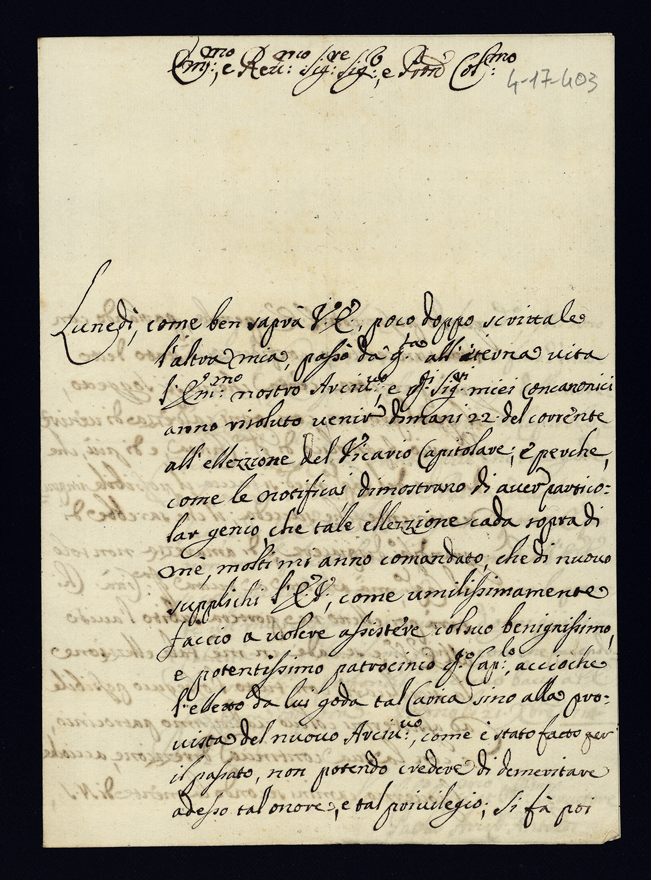 Em:mo, e Rev:mo Sig:re Sig:, e Prõn Col:mo
4-17-403
Lunedì, come ben saprà V.E., poco doppo scrittale
l'altra mia, passò da q.ta all'eterna vita
l'Em:mo nostro Arciv:vo, e q.sti Sig:ri miei Concanonici
anno risoluto venir dimani 22 del corrente
all'ellezzione del Vicario Capitolare; e perche,
come le notificai dimostrano di aver partico:
lar genio, che tale ellezzione cada sopra di
me, molti mi anno comandato, che di nuovo
supplichi l'E.V., come umilissimamente
faccio a volere assistere col suo benignissimo,
e potentissimo patrocinio q.to Cap:lo, accioche
l'eletto da lui goda tal Carica sino alla pro:
vista del nuovo Arciv:vo, come è stato fatto per
il passato, non potendo credere di demeritare
adesso tal onore, e tal privilegio; Si fà poi